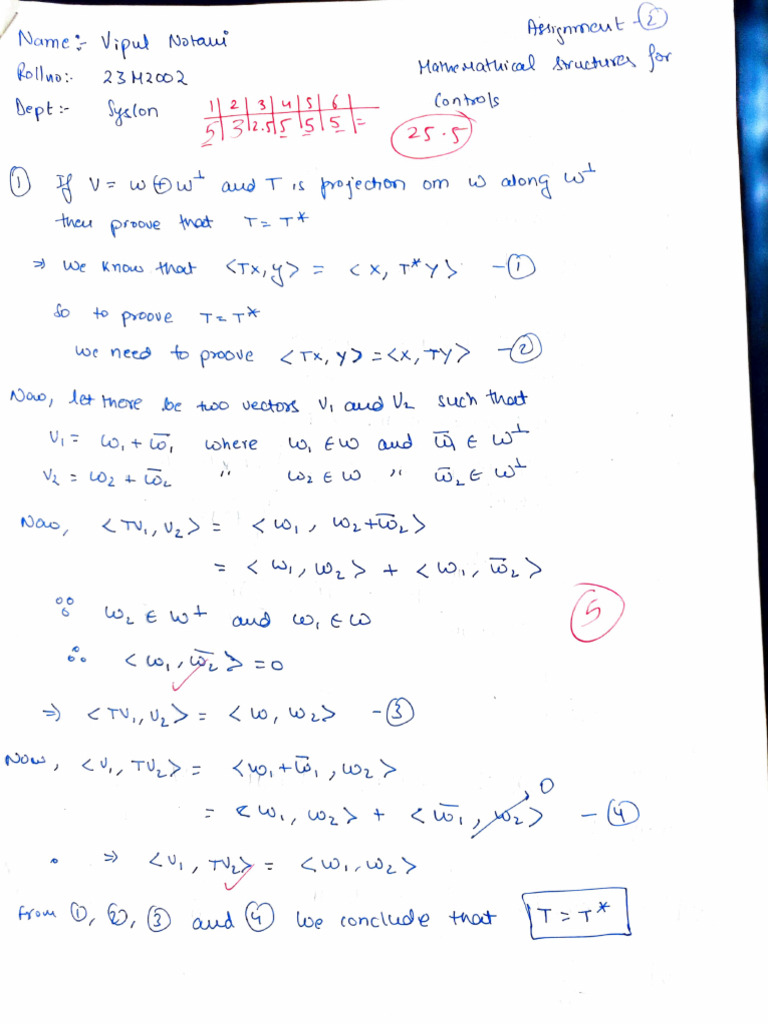 Name:- Vipul Notani
Assignment - ②
Roll no:- 23M2002
Mathemathical Structures for
Controls
Dept:- Syscon
1 | 2 | 3 | 4 | 5 | 6 |
5 | 3 | 2.5 | 5 | 5 | 5 | =
25.5
① If V = W ⊕ W⊥ and T is projection om W along W⊥
then proove that T = T*
⇒ We know that <Tx, y> = <x, T*y> - ①
So to proove T = T*
we need to proove <Tx, y> = <x, Ty> - ②
Now, let there be two vectors V₁ and V₂ such that
V₁ = ω₁ + ω̅₁ where ω₁ ∈ W and ω̅₁ ∈ W⊥
V₂ = ω₂ + ω̅₂ " ω₂ ∈ W " ω̅₂ ∈ W⊥
Now, <TV₁, V₂> = <ω₁, ω₂ + ω̅₂>
= <ω₁, ω₂> + <ω₁, ω̅₂>
∵ ω₂ ∈ W⊥ and ω₁ ∈ W
5
∴ <ω₁, ω̅₂> = 0
⇒ <TV₁, V₂> = <ω, ω₂> - ③
Now, <V₁, TV₂> = <ω₁ + ω̅₁, ω₂>
= <ω₁, ω₂> + <ω̅₁, ω₂> 0 - ④
⇒ <V₁, TV₂> = <ω₁, ω₂>
from ①, ②, ③ and ④ we conclude that T = T*